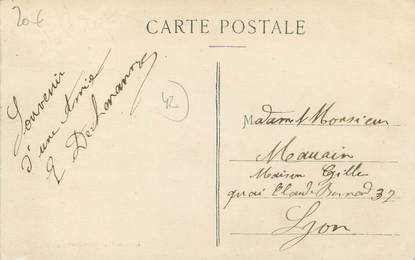 20€
CARTE POSTALE
Souvenir
d'une Amie
42
Madame & Monsieur
Mauain
Maison Gille
quai Claude Bernard 32
Lyon